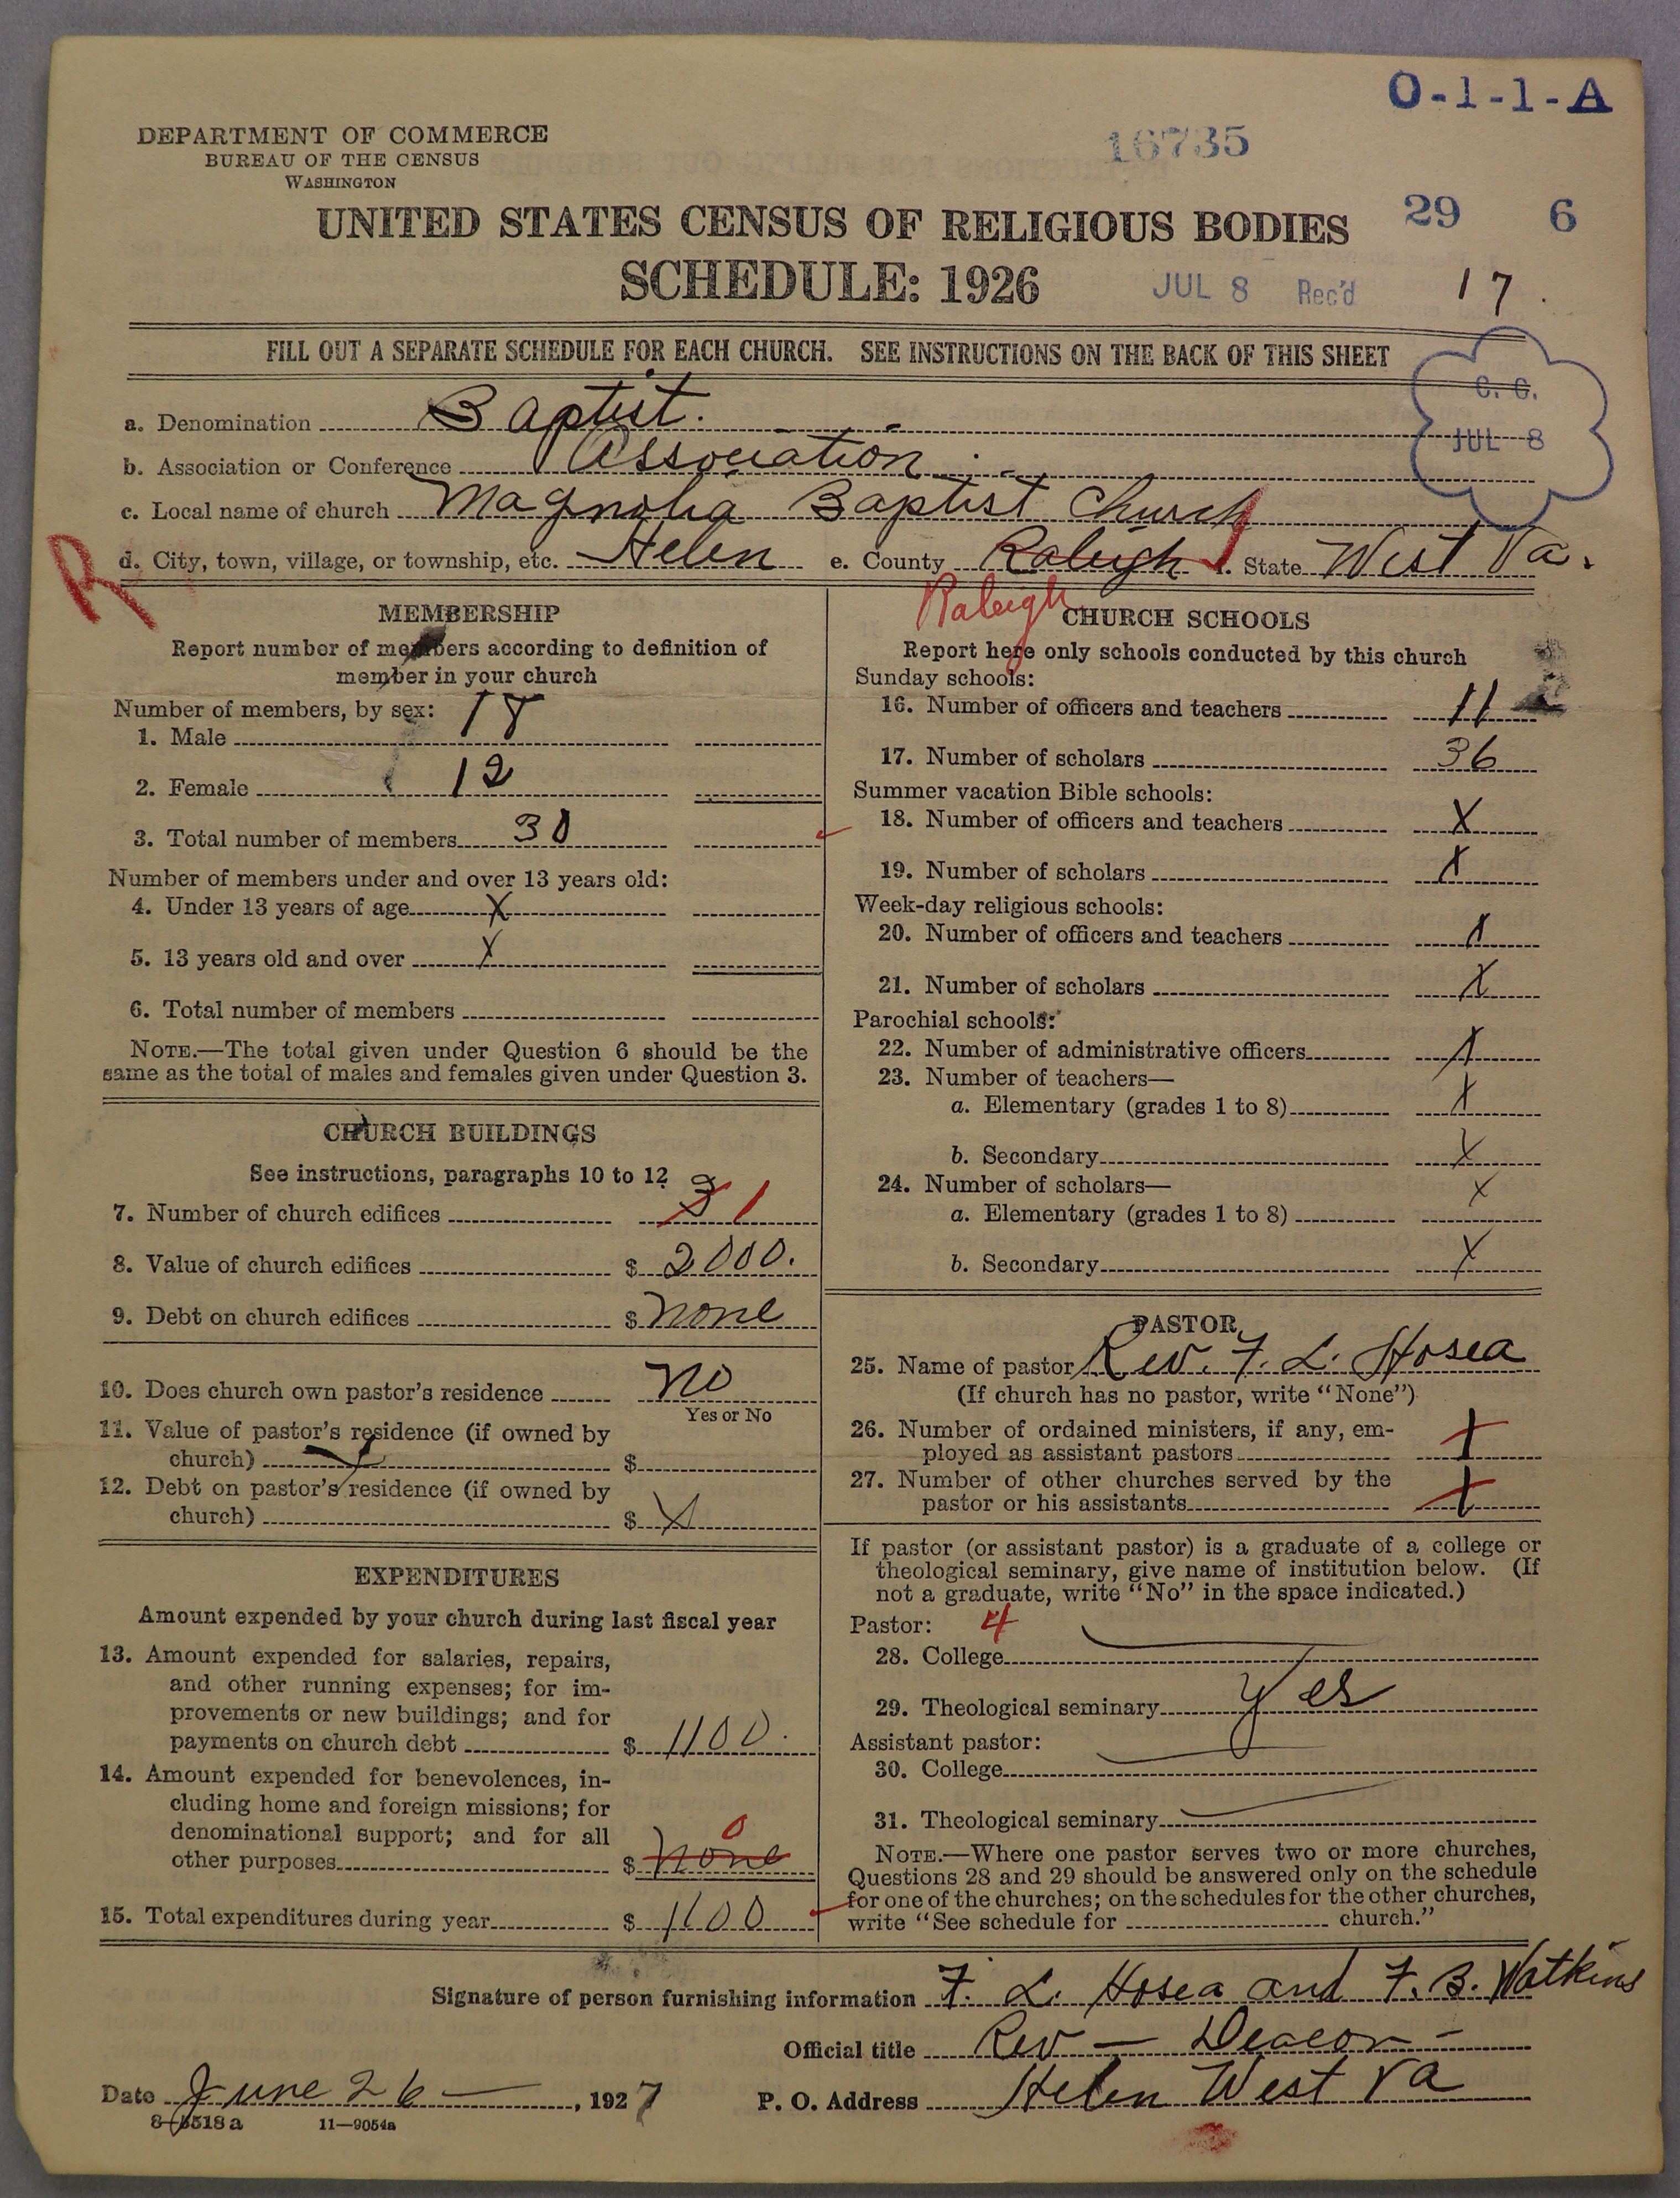 O-1-1-A
DEPARTMENT OF COMMERCE
BUREAU OF THE CENSUS
WASHINGTON
16735
UNITED STATES CENSUS OF RELIGIOUS BODIES
29 6
SCHEDULE: 1926
JUL 8 Rec'd
17
FILL OUT A SEPARATE SCHEDULE FOR EACH CHURCH. SEE INSTRUCTIONS ON THE BACK OF THIS SHEET
C. C.
JUL 8
a. Denomination Baptist.
b. Association or Conference Association
c. Local name of church Magnolia Baptist Church
R
d. City, town, village, or township, etc. Helen e. County Raleigh f. State West Va.
Raleigh
MEMBERSHIP
Report number of members according to definition of
member in your church
Number of members, by sex:
1. Male 18
2. Female 12
3. Total number of members 30
Number of members under and over 13 years old:
4. Under 13 years of age X
5. 13 years old and over X
6. Total number of members
NOTE.—The total given under Question 6 should be the
same as the total of males and females given under Question 3.
CHURCH BUILDINGS
See instructions, paragraphs 10 to 12
7. Number of church edifices 3 1
8. Value of church edifices $ 2000.
9. Debt on church edifices $ none
10. Does church own pastor's residence no
Yes or No
11. Value of pastor's residence (if owned by
church) X $
12. Debt on pastor's residence (if owned by
church) $ X
EXPENDITURES
Amount expended by your church during last fiscal year
13. Amount expended for salaries, repairs,
and other running expenses; for im-
provements or new buildings; and for
payments on church debt $ 1100.
14. Amount expended for benevolences, in-
cluding home and foreign missions; for
denominational support; and for all
0
other purposes $ none
15. Total expenditures during year $ 1100
CHURCH SCHOOLS
Report here only schools conducted by this church
Sunday schools:
16. Number of officers and teachers 11
17. Number of scholars 36
Summer vacation Bible schools:
18. Number of officers and teachers X
19. Number of scholars X
Week-day religious schools:
20. Number of officers and teachers X
21. Number of scholars X
Parochial schools:
22. Number of administrative officers X
23. Number of teachers—
a. Elementary (grades 1 to 8) X
b. Secondary X
24. Number of scholars— X
a. Elementary (grades 1 to 8)
b. Secondary X
PASTOR
25. Name of pastor Rev. F. L. Hosea
(If church has no pastor, write "None")
26. Number of ordained ministers, if any, em-
ployed as assistant pastors
27. Number of other churches served by the
pastor or his assistants
If pastor (or assistant pastor) is a graduate of a college or
theological seminary, give name of institution below. (If
not a graduate, write "No" in the space indicated.)
Pastor: 4
28. College
29. Theological seminary Yes
Assistant pastor:
30. College
31. Theological seminary
NOTE.—Where one pastor serves two or more churches,
Questions 28 and 29 should be answered only on the schedule
for one of the churches; on the schedules for the other churches,
write "See schedule for church."
Signature of person furnishing information F. L. Hosea and F. B. Watkins
Official title Rev — Deacon —
Date June 26 —, 1927 P. O. Address Helen West Va
8-5518 a 11—9054a